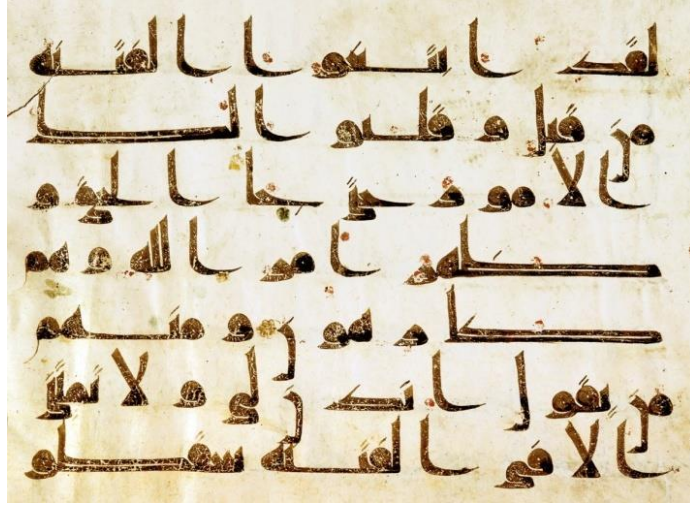 لقد ابتغوا الفتنة
من قبل وقلبوا لك
الامور حتى جا الحق و
ظهر امر الله وهم
كرهون ومنهم
من يقول ائذن لي ولا تفتني
الا في الفتنة سقطو